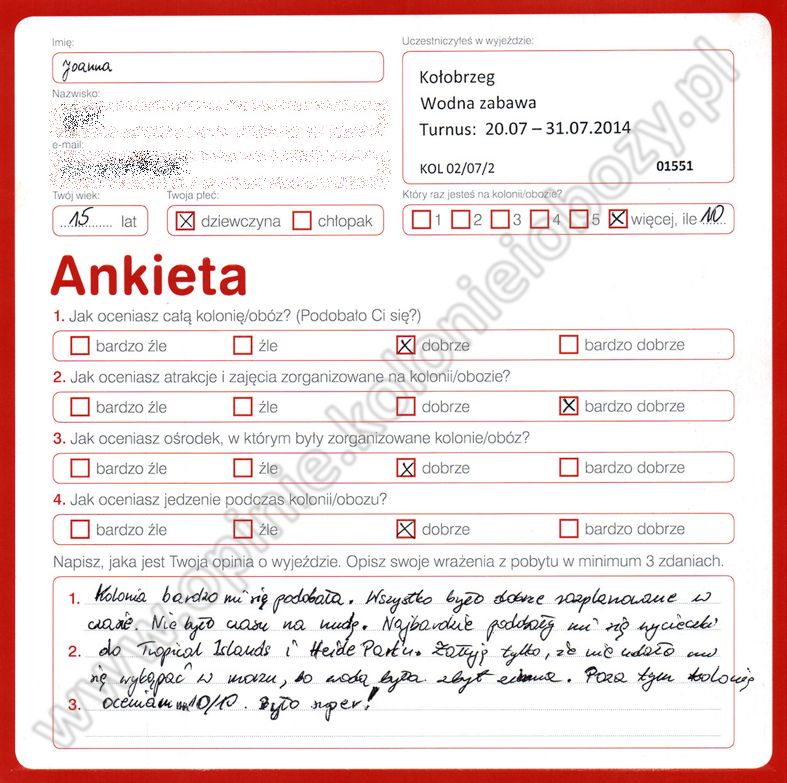 Imię:
Joanna
Nazwisko:
e-mail:
Twój wiek:
15 lat
Twoja płeć:
dziewczyna chłopak
Uczestniczyłeś w wyjeździe:
Kołobrzeg
Wodna zabawa
Turnus: 20.07 – 31.07.2014
KOL 02/07/2 01551
Który raz jesteś na kolonii/obozie?
1 2 3 4 5 więcej, ile 10
Ankieta
1. Jak oceniasz całą kolonię/obóz? (Podobało Ci się?)
bardzo źle źle dobrze bardzo dobrze
2. Jak oceniasz atrakcje i zajęcia zorganizowane na kolonii/obozie?
bardzo źle źle dobrze bardzo dobrze
3. Jak oceniasz ośrodek, w którym były zorganizowane kolonie/obóz?
bardzo źle źle dobrze bardzo dobrze
4. Jak oceniasz jedzenie podczas kolonii/obozu?
bardzo źle źle dobrze bardzo dobrze
Napisz, jaka jest Twoja opinia o wyjeździe. Opisz swoje wrażenia z pobytu w minimum 3 zdaniach.
1. Kolonia bardzo mi się podobała. Wszystko było dobrze rozplanowane w
czasie. Nie było czasu na nudę. Najbardziej podobały mi się wycieczki
2. do Tropical Islands i Heide Parku. Żałuję tylko, że nie udało mi
się wykąpać w morzu, bo woda była zbyt zimna. Poza tym kolonię
3. oceniam na 10/10. Było super!
www.opinie.kolonieiobozy.pl